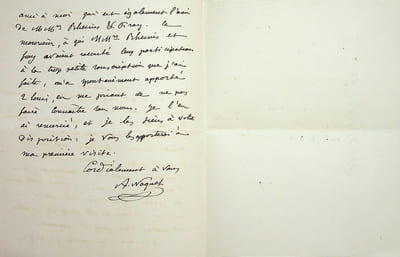 ami à moi qui est également l'ami
de MMrs & Firay. Ce
monsieur, à qui MMrs et
avaient raconté leur participation
à la trop petite souscription que j'ai
faite, m'a spontanément apporté
2 louis, en me priant de ne pas
faire connaître son nom. Je l'en
ai remercié, et je les tiens à votre
disposition; je vous les apporterai à
ma première visite.
Cordialement à vous
A. Naquet